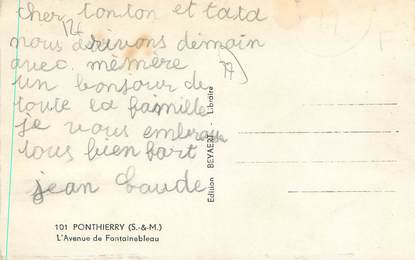 cher tonton et tata
nous arivons demain
avec mémère
un bonjour de
toute la famille
je vous embrasse
tous bien fort
jean Claude
Edition BEYAERT - Libraire
101 PONTHIERRY (S.-&-M.)
L'Avenue de Fontainebleau